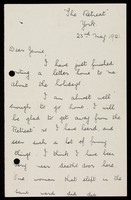 The Retreat
York
23rd May 1921
Dear Jamie
I have just finished
writing a letter home to ma
about the holidays.
I am almost well
enough to go home. I will
be glad to get away from the
Retreat as I have heard and
seen such a lot of funny
things I think I have seen
very near deaths door here.
One woman that slept in the
same ward did die